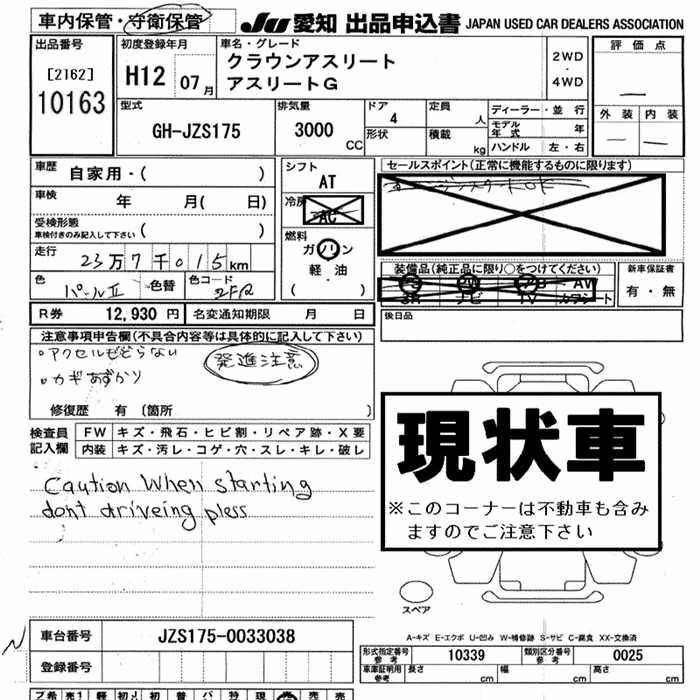 車内保管・守衛保管
JU 愛知 出品申込書 JAPAN USED CAR DEALERS ASSOCIATION
出品番号 [2162] 10163
初度登録年月 H12 07月
車名・グレード クラウンアスリート アスリートG
2WD・4WD
評価点 —
外装 内装
— —
型式 GH-JZS175
排気量 3000 CC
ドア 4 形状
定員 人
積載 kg
ディーラー・並行
モデル年式 年
ハンドル 左・右
車歴 自家用・( )
車検 年 月( 日)
受検形態 車検付きのみ記入して下さい ( )
走行 23万7千015km
色 パールⅡ 色替 色コード 2FR
シフト AT
冷房 AC
燃料 ガソリン 軽・油 ( )
セールスポイント(正常に機能するものに限ります)
装備品(純正品に限り○をつけてください)
PS PW AB・AW
SR ナビ TV カワシート
新車保証書 有・無
後日品
R券 12,930円 名変通知期限 月 日
注意事項申告欄(不具合内容等は具体的に記入して下さい)
・アクセルもどらない 発進注意
・カギあずかり
修復歴 有 〔箇所 〕
検査員記入欄
FW キズ・飛石・ヒビ割・リペア跡・X要
内装 キズ・汚レ・コゲ・穴・スレ・キレ・破レ
Caution When starting
dont driveing pless
現状車
※このコーナーは不動車も含み
ますのでご注意下さい
スペア
A-キズ E-エクボ U-凹み W-補修跡 S-サビ C-腐食 XX-交換済
車台番号 JZS175-0033038
登録番号
形式指定番号 参考 10339 類別区分番号 参考 0025
車庫証明用 参考 長さ cm 幅 cm 高さ cm